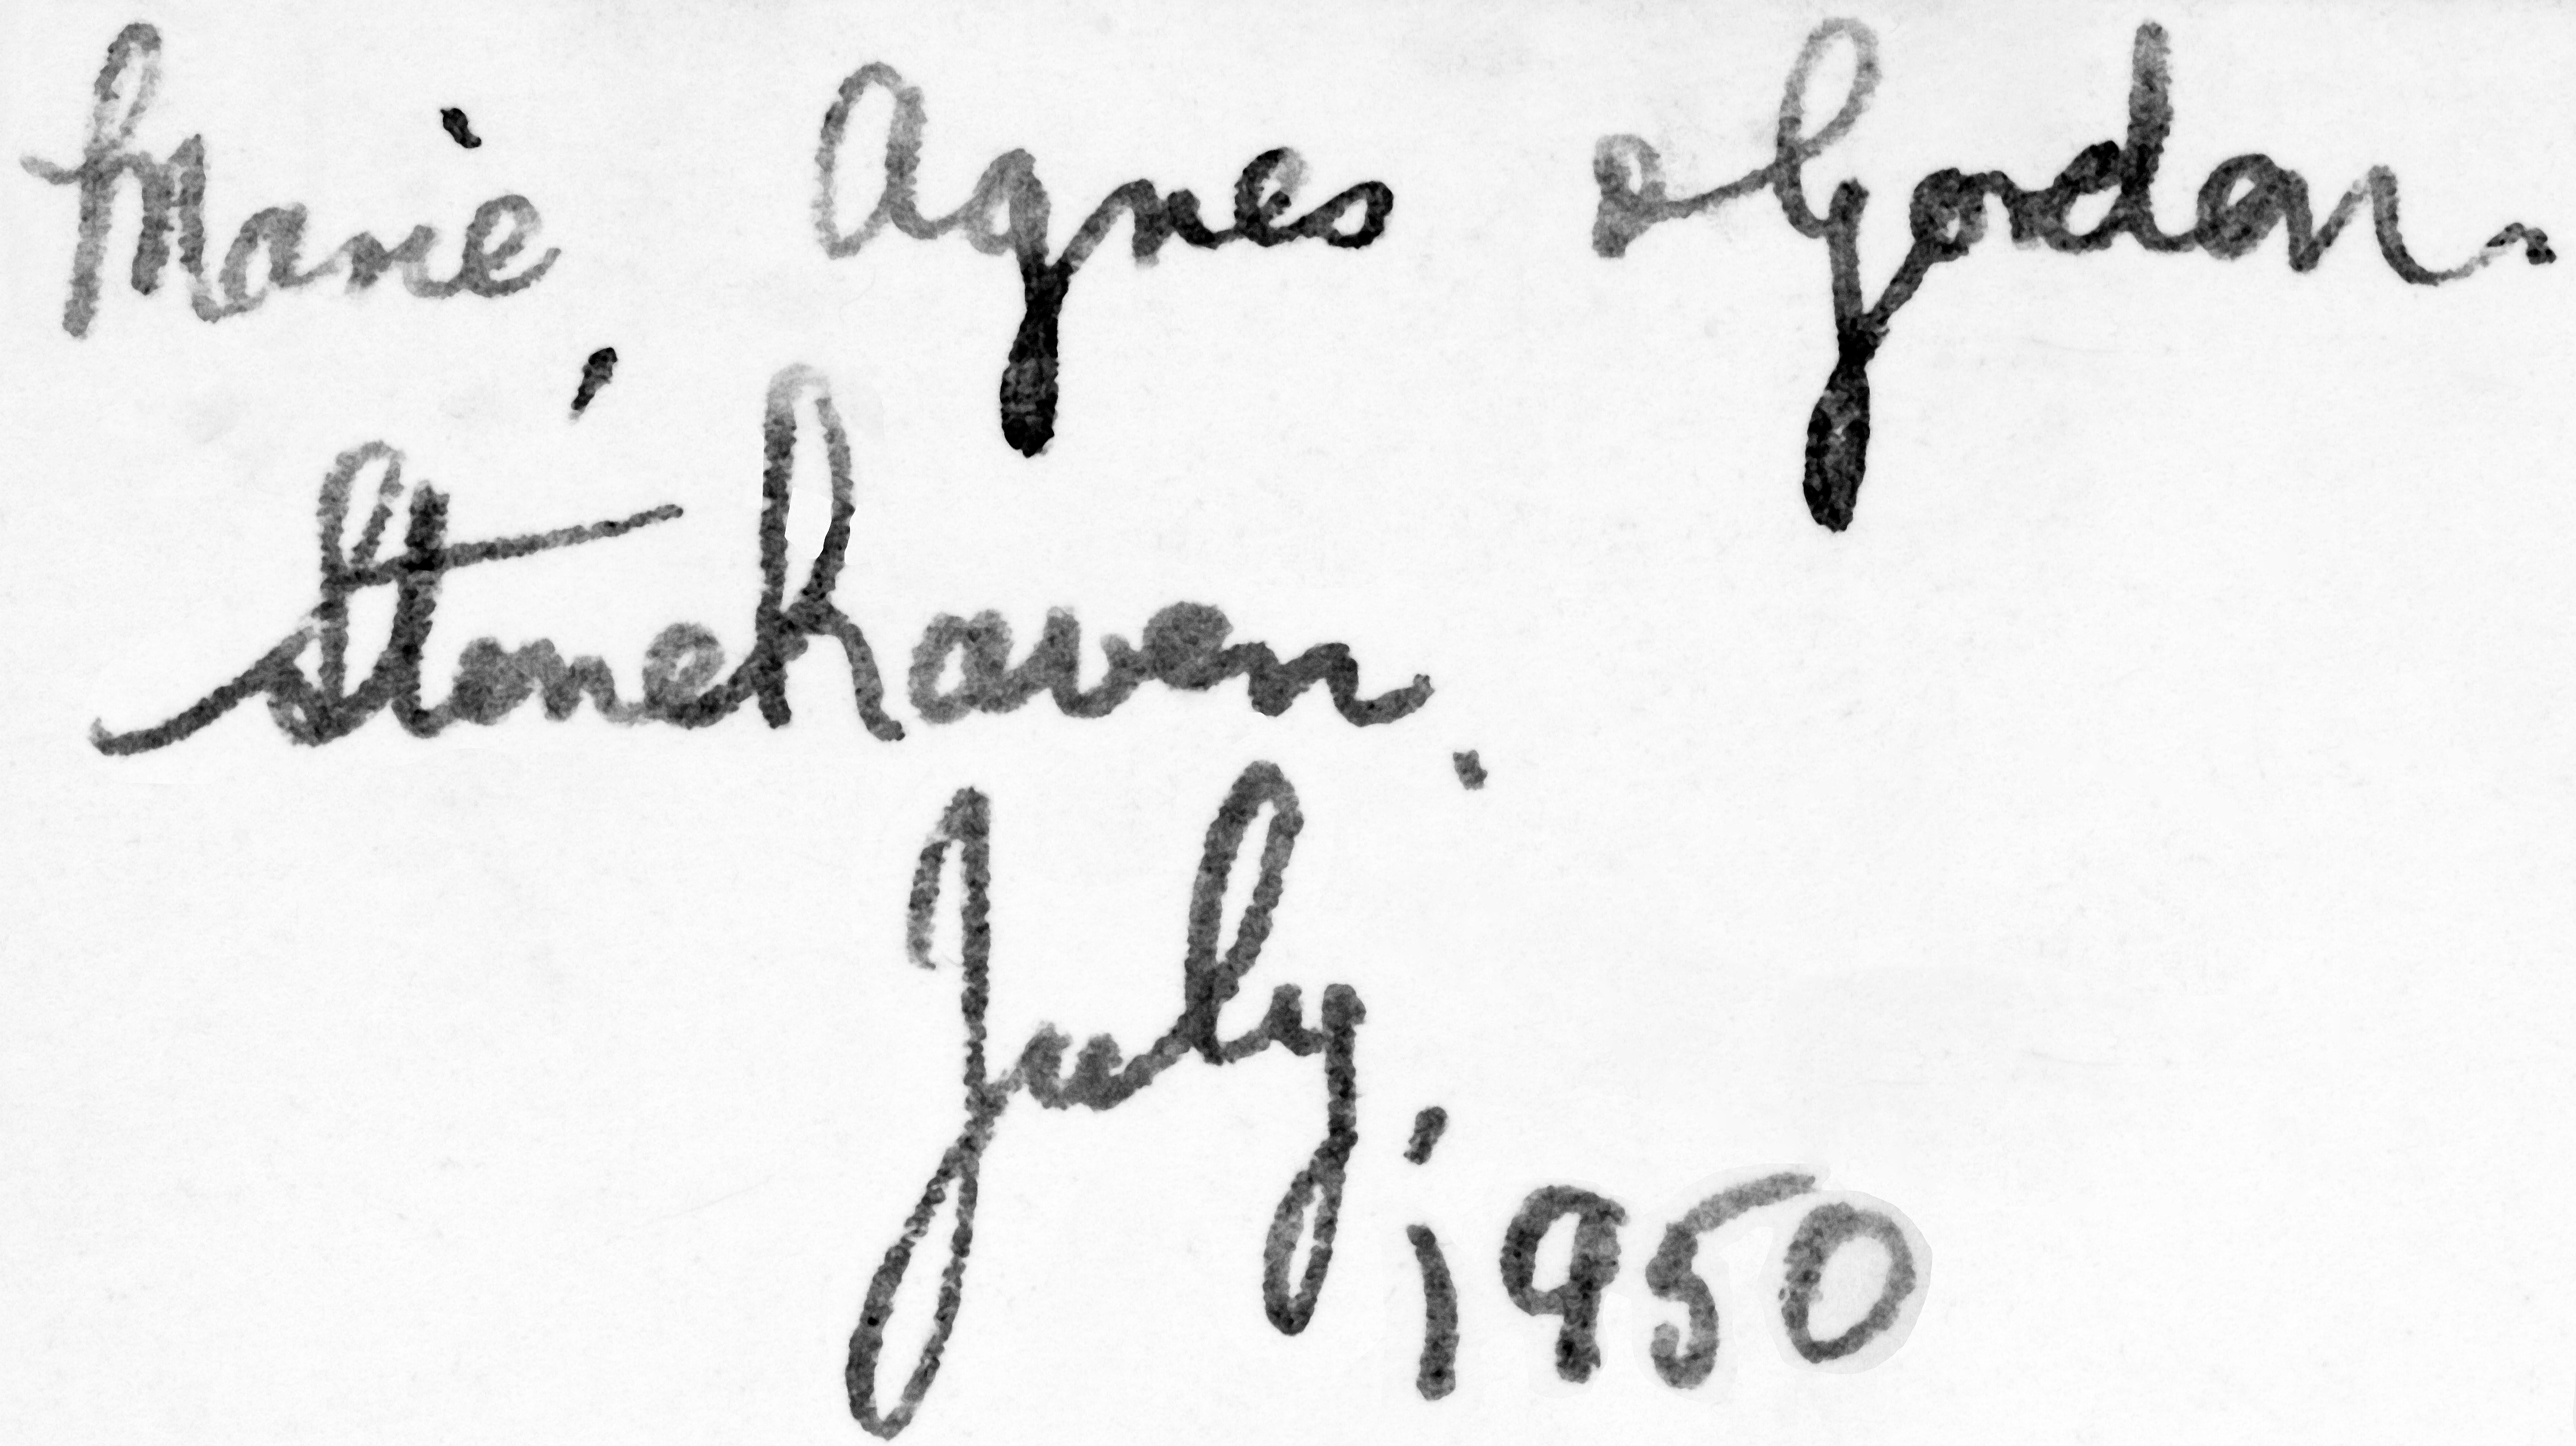 Marie, Agnes & Gordon.
Stonehaven.
July,
1950